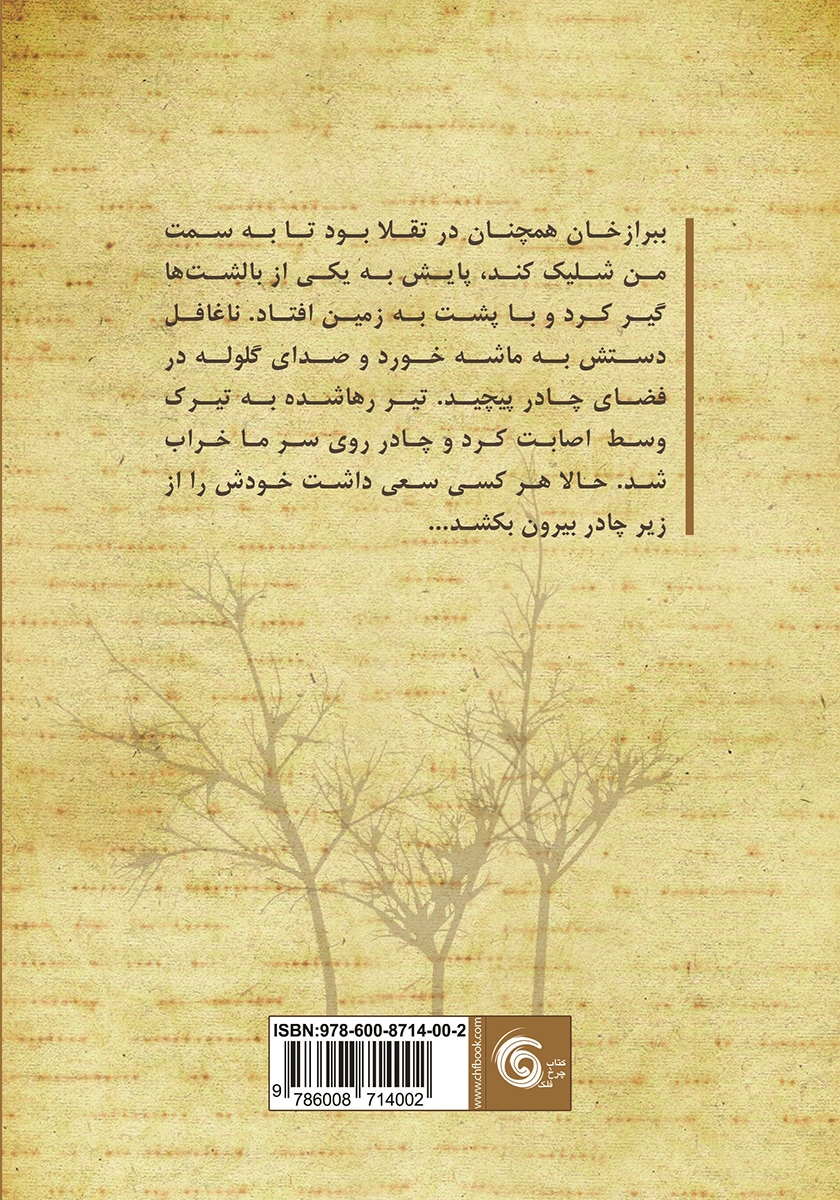 ببرازخان همچنان در تقلا بود تا به سمت
من شلیک کند، پایش به یکی از بالشت‌ها
گیر کرد و با پشت به زمین افتاد. ناغافل
دستش به ماشه خورد و صدای گلوله در
فضای چادر پیچید. تیر رهاشده به تیرک
وسط اصابت کرد و چادر روی سر ما خراب
شد. حالا هر کسی سعی داشت خودش را از
زیر چادر بیرون بکشد...
ISBN:978-600-8714-00-2
9 786008 714002
www.chfbook.com
کتاب
چرخ
فلک